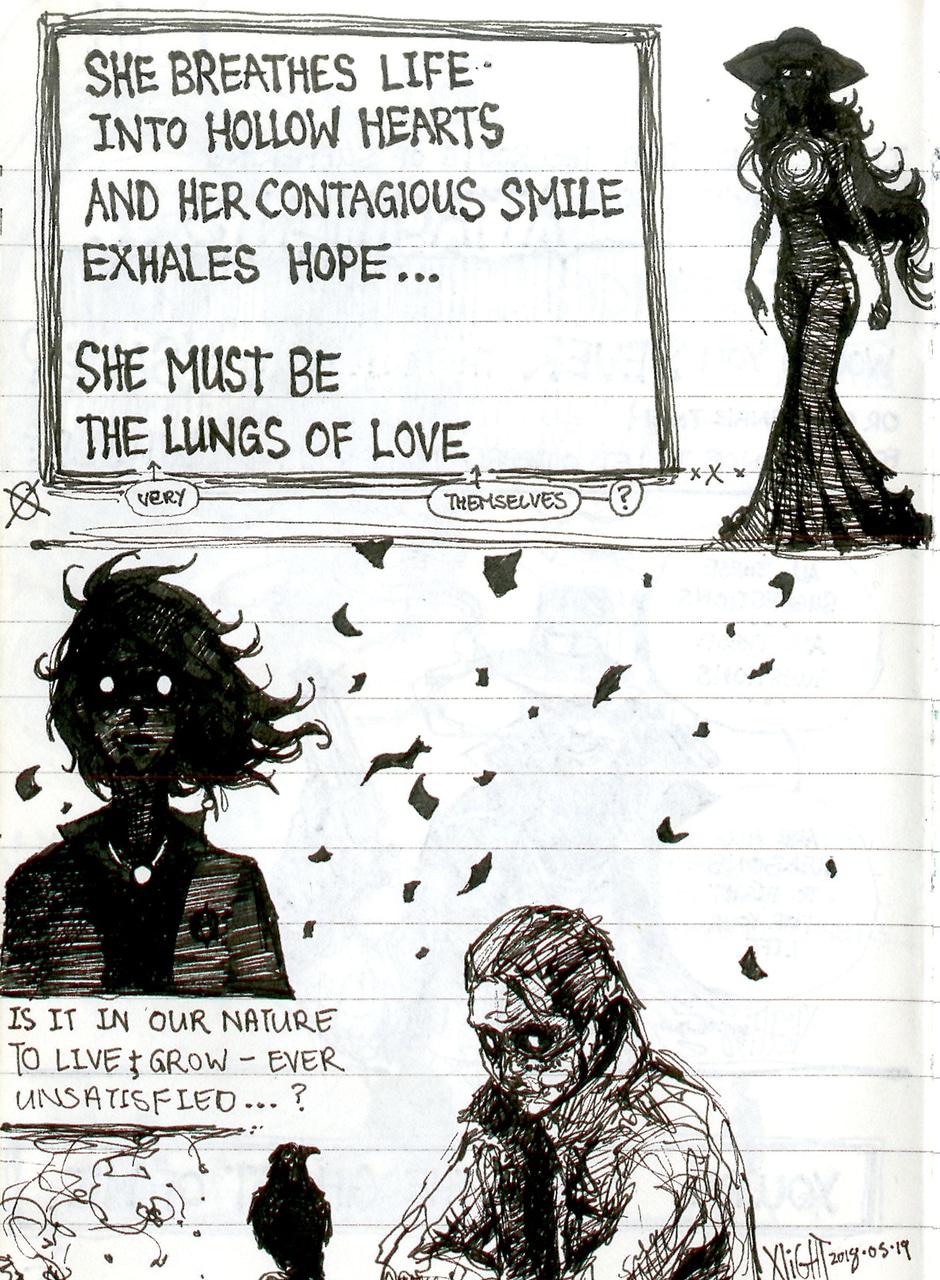 SHE BREATHES LIFE
INTO HOLLOW HEARTS
AND HER CONTAGIOUS SMILE
EXHALES HOPE...
SHE MUST BE
THE LUNGS OF LOVE
VERY
THEMSELVES
?
IS IT IN OUR NATURE
TO LIVE & GROW - EVER
UNSATISFIED...?
XLIGHT 2018.05.19